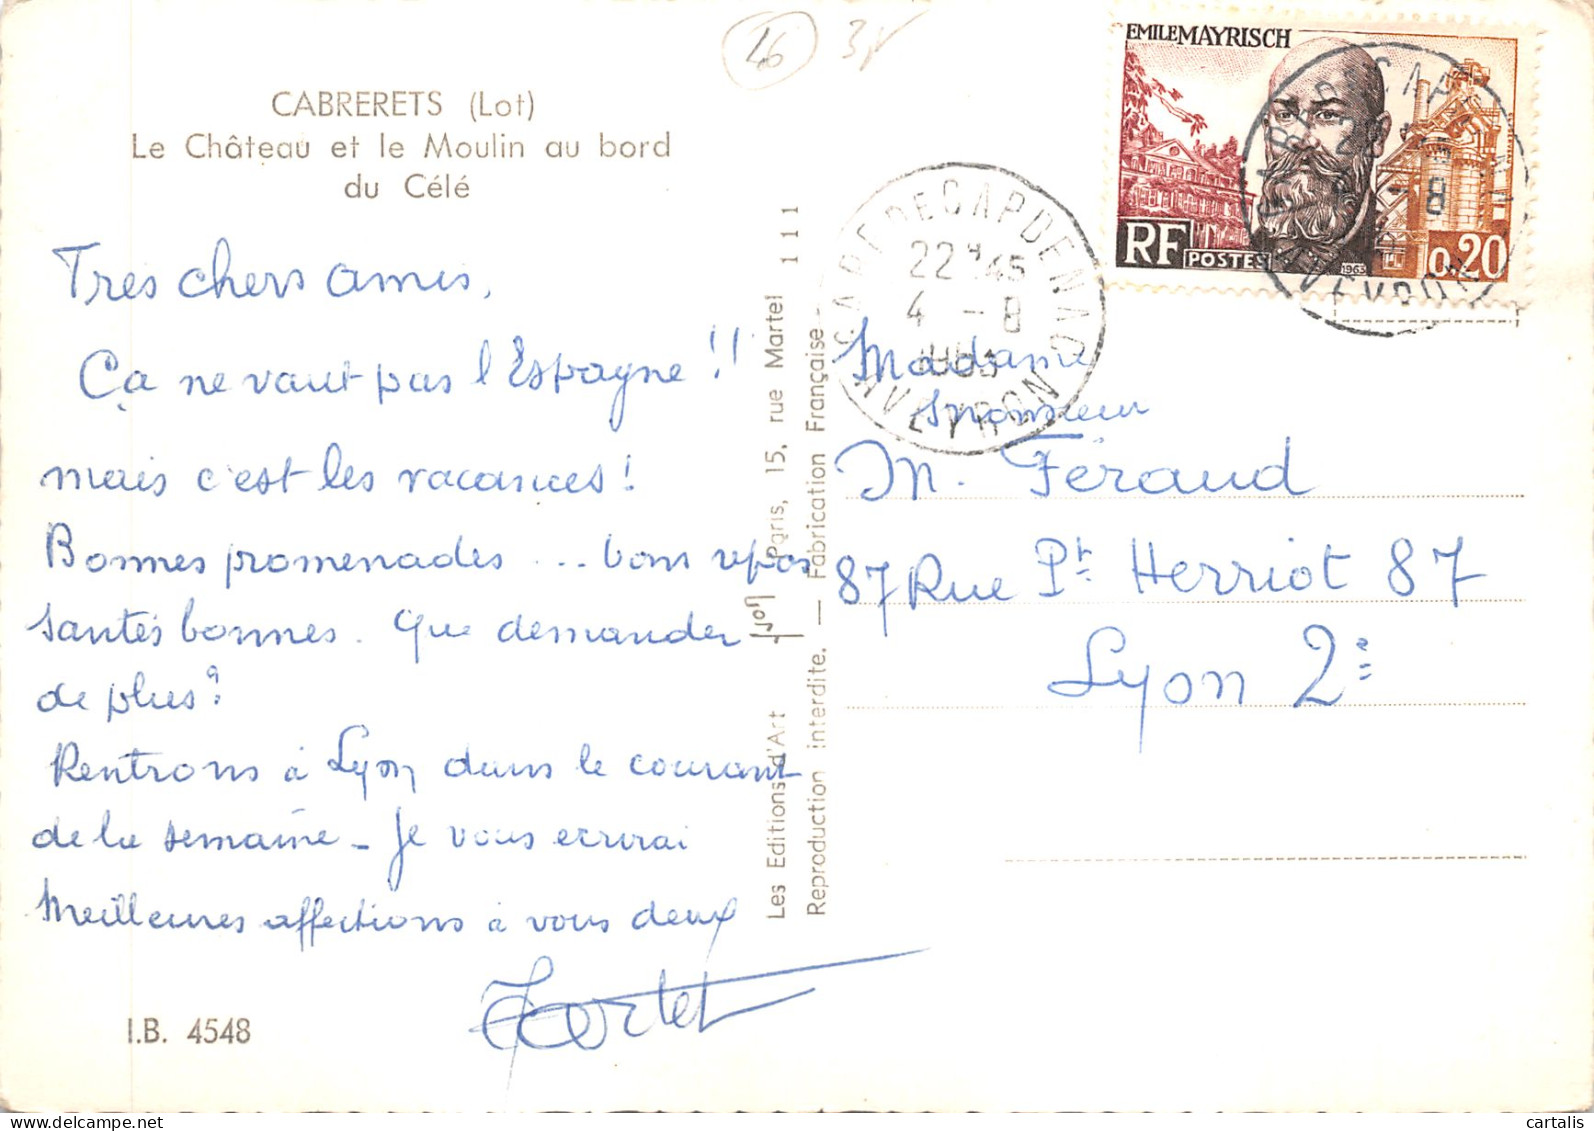 46 3f
CABRERETS (Lot)
Le Château et le Moulin au bord
du Célé
Très chers amis,
Ça ne vaut pas l'Espagne !!
mais c'est les vacances !
Bonnes promenades ... bons repos
santés bonnes. Que demander
de plus ?
Rentrons à Lyon dans le courant
de la semaine - Je vous ecrirai
Meilleures affections à vous deux
I.B. 4548
Les Editions d'Art Yvon Paris, 15, rue Martel 111
Reproduction interdite. — Fabrication Française -
EMILE MAYRISCH
RF POSTES 1963 0,20
GARE DE CAPDENAC
22H45
4 - 8
1963
AVEYRON
Madame
Monsieur
M. Féraud
87 Rue Pt Herriot 87
Lyon 2e
cartalis